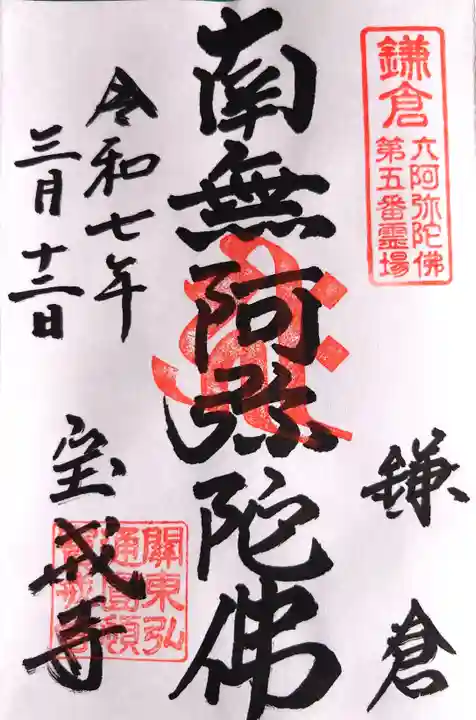 鎌倉
六阿弥陀佛
第五番霊場
鎌倉
南無阿弥陀佛
令和七年
三月十三日
宝戒寺
關東弘
通圓頓